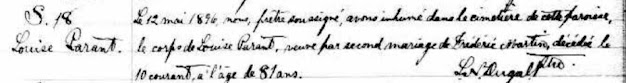 S. 18
Louise Parant.
Le 12 mai 1896, nous, prêtre soussigné, avons inhumé dans le cimetière de cette paroisse,
le corps de Louise Parant, veuve par second mariage de Frédéric Martin, décédée le
10 courant, à l'âge de 81 ans.
L. N. Dugal Ptre.